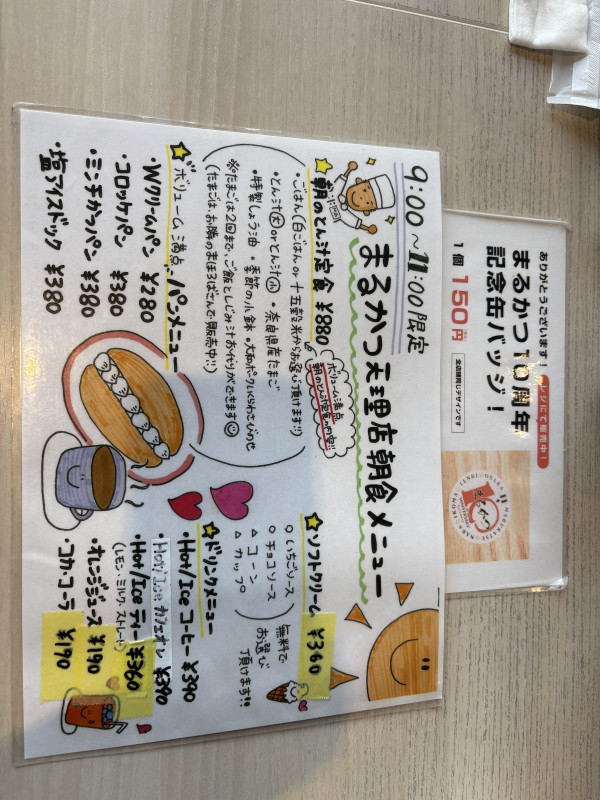 9:00～11:00限定
まるかつ天理店朝食メニュー
朝のとん汁定食 ¥880
ボリューム満点
朝のとん汁定食の内容!!
・ごはん(白ごはん or 十五穀米からお選び頂けます!!)
・とん汁(大) or とん汁(小) ・奈良県産たまご
・特製しょう油 ・季節の小鉢 ・大和ポークしぐれわさびのせ
※たまごは2回まで、ご飯としじみ汁お代りができます
(たまごは、お隣のまほろばさんで販売中!!)
ボリューム満点♪パンメニュー
・Wクリームパン ¥280
・コロッケパン ¥380
・ミンチカツパン ¥380
・塩アイスドック ¥380
ソフトクリーム ¥360
○いちごソース
○チョコソース
△コーン
△カップ
無料で
お選び
頂けます!!
ドリンクメニュー
・Hot/Ice コーヒー ¥390
・Hot/Ice カフェオレ ¥390
・Hot/Ice ティー ¥360
(レモン・ミルク・ストレート)
・オレンジジュース ¥190
・コカ・コーラ ¥190
ありがとうございます!
レジにて販売中!
まるかつ10周年
記念缶バッジ!
1個 150円
全店舗同じデザインです